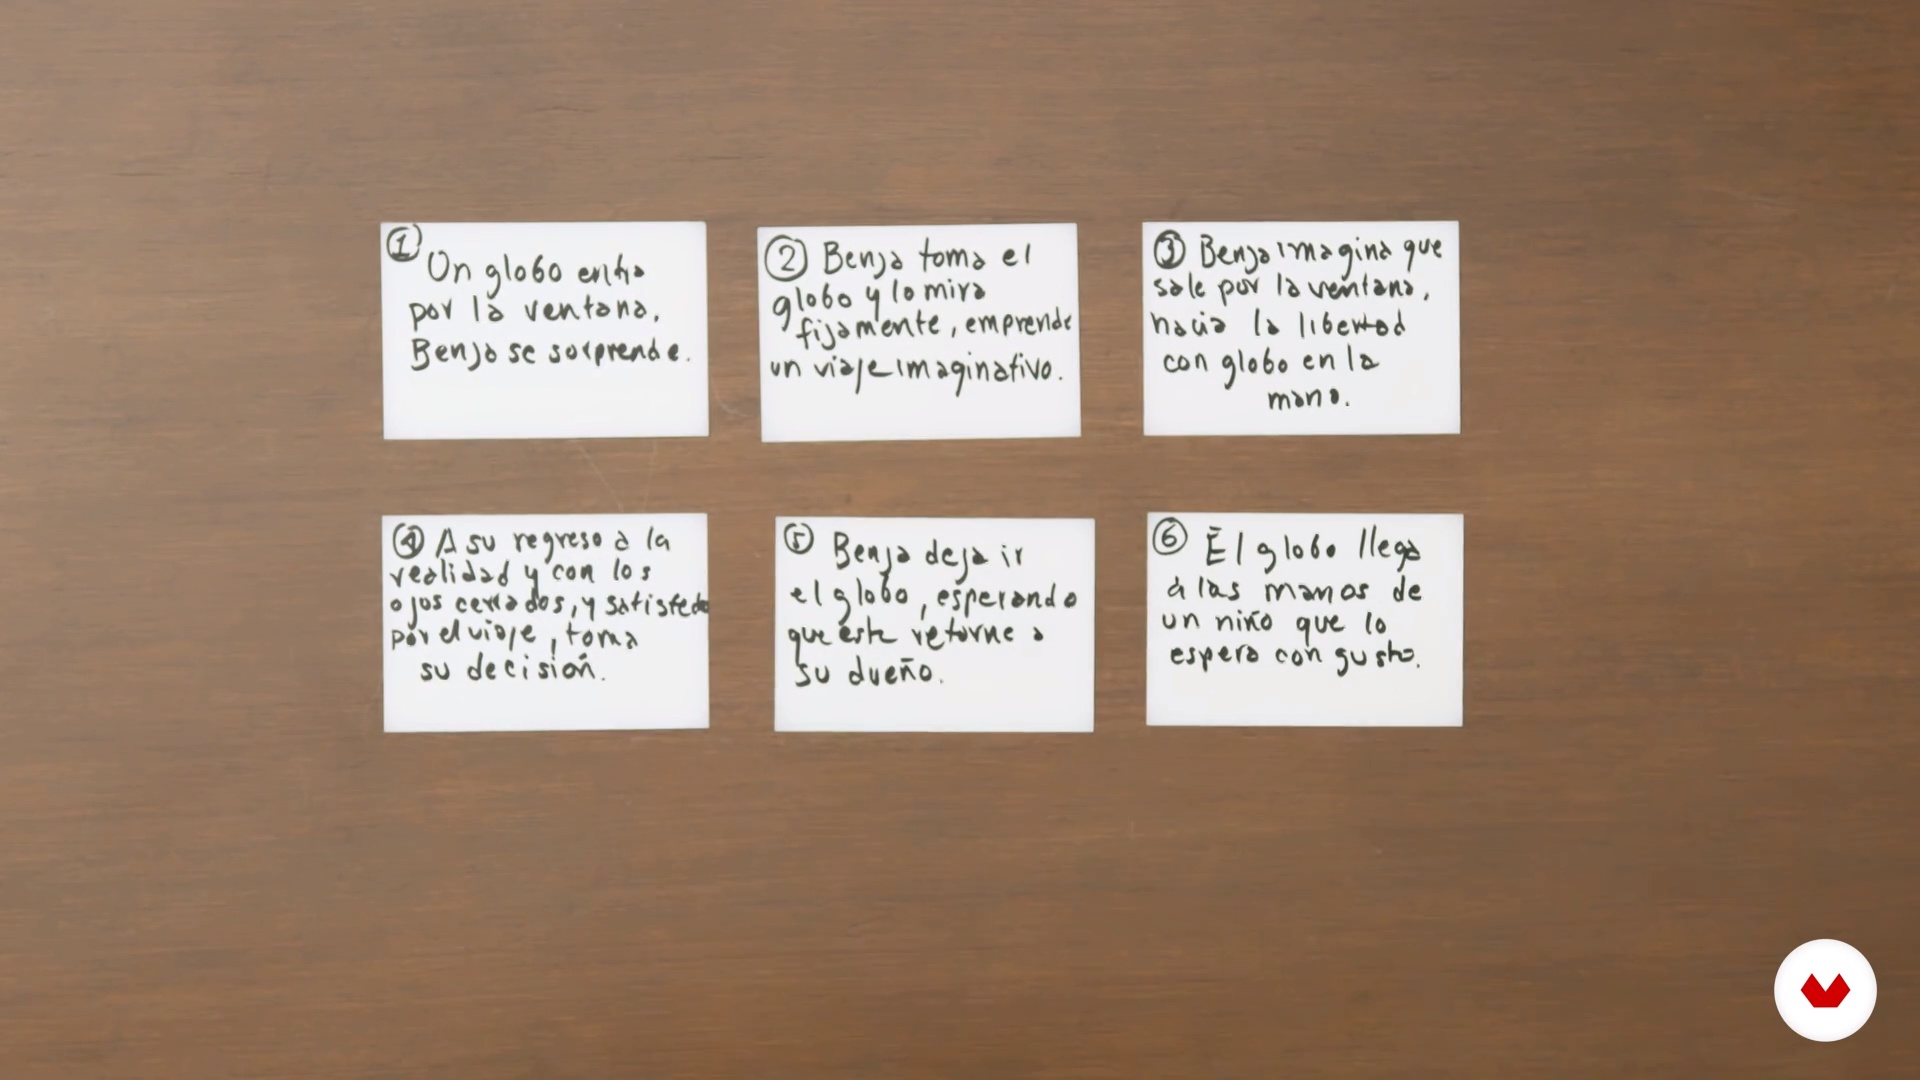 1
Un globo entra
por la ventana.
Benja se sorprende.
2 Benja toma el
globo y lo mira
fijamente, emprende
un viaje imaginativo.
3 Benja imagina que
sale por la ventana,
hacia la libertad
con globo en la
mano.
4 A su regreso a la
realidad y con los
ojos cerrados, y satisfecho
por el viaje, toma
su decisión.
5 Benja deja ir
el globo, esperando
que este retorne a
su dueño.
6 El globo llega
a las manos de
un niño que lo
espera con gusto.